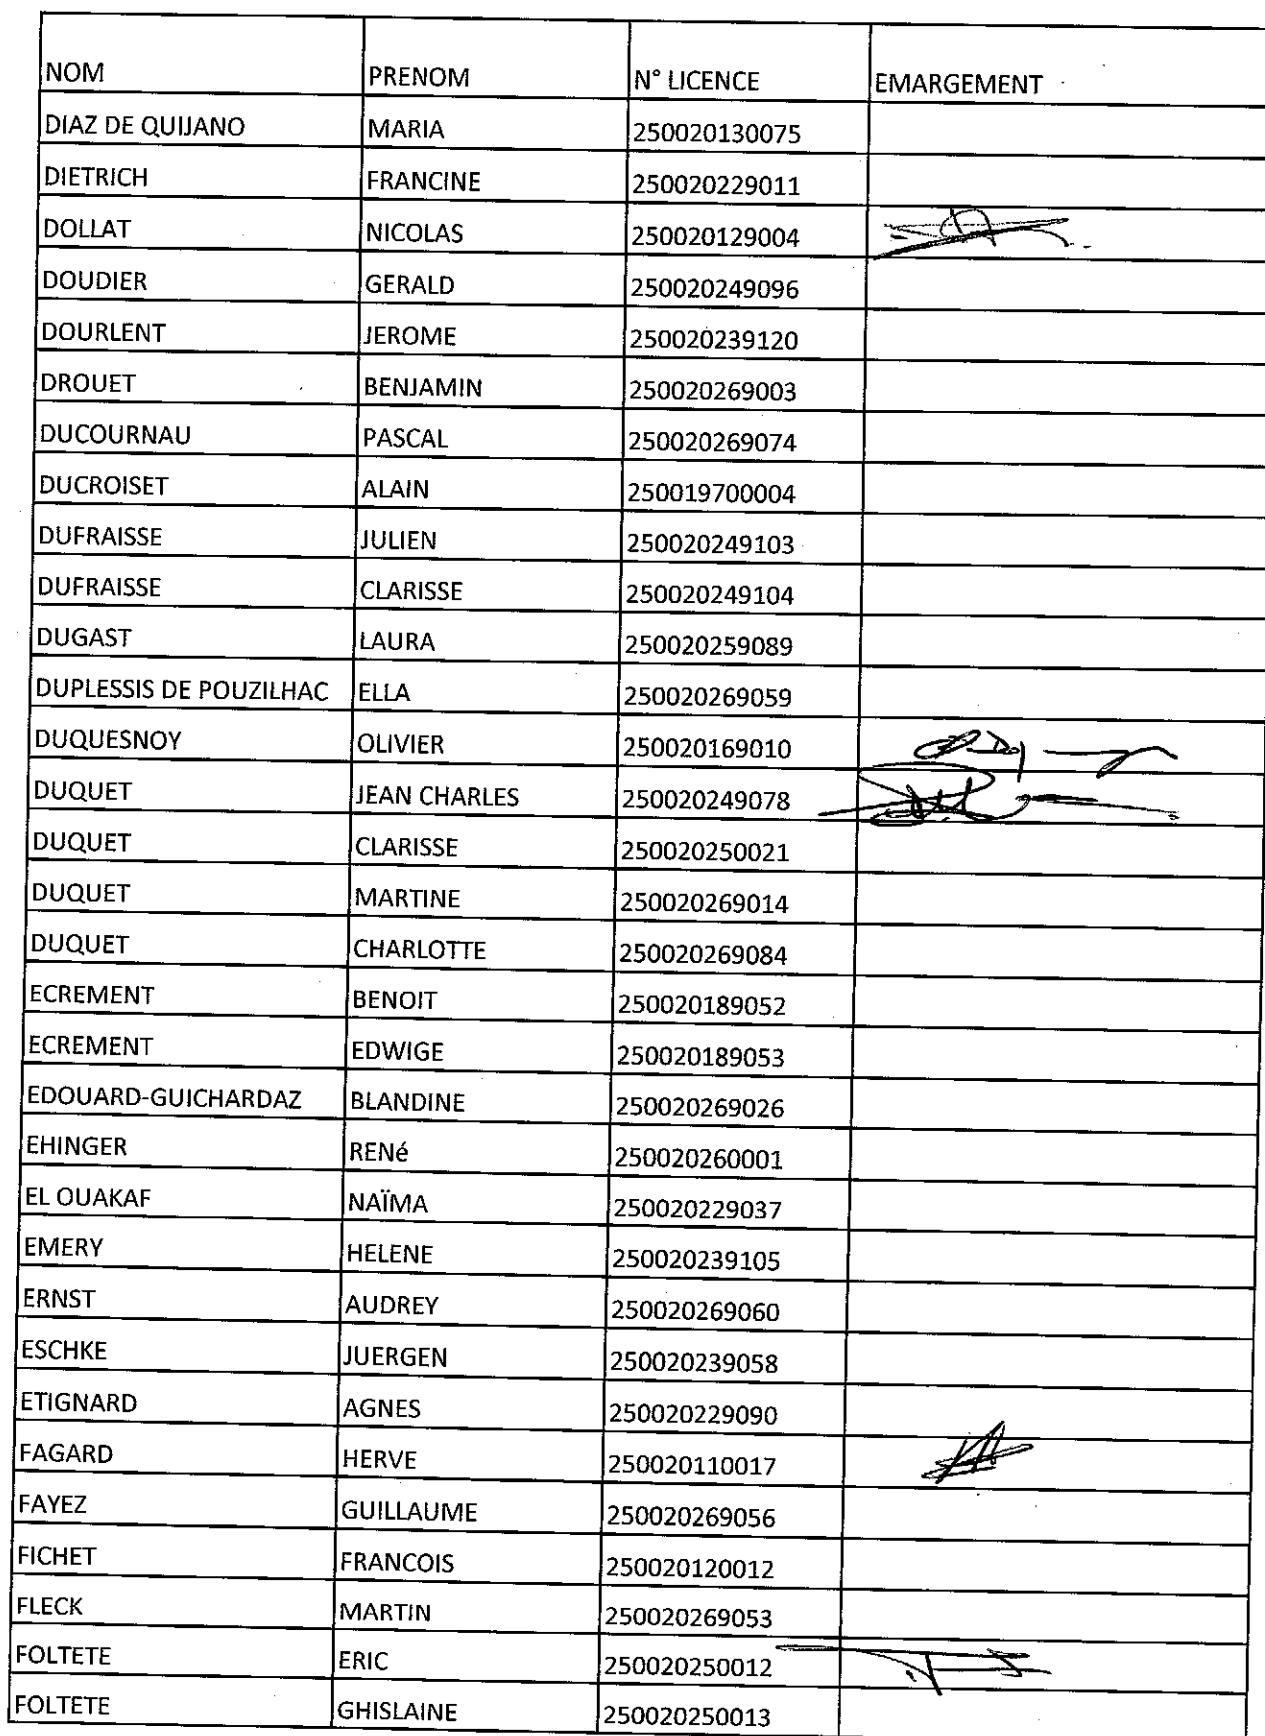 NOM PRENOM N° LICENCE EMARGEMENT
DIAZ DE QUIJANO MARIA 250020130075
DIETRICH FRANCINE 250020229011
DOLLAT NICOLAS 250020129004
DOUDIER GERALD 250020249096
DOURLENT JEROME 250020239120
DROUET BENJAMIN 250020269003
DUCOURNAU PASCAL 250020269074
DUCROISET ALAIN 250019700004
DUFRAISSE JULIEN 250020249103
DUFRAISSE CLARISSE 250020249104
DUGAST LAURA 250020259089
DUPLESSIS DE POUZILHAC ELLA 250020269059
DUQUESNOY OLIVIER 250020169010
DUQUET JEAN CHARLES 250020249078
DUQUET CLARISSE 250020250021
DUQUET MARTINE 250020269014
DUQUET CHARLOTTE 250020269084
ECREMENT BENOIT 250020189052
ECREMENT EDWIGE 250020189053
EDOUARD-GUICHARDAZ BLANDINE 250020269026
EHINGER RENé 250020260001
EL OUAKAF NAÏMA 250020229037
EMERY HELENE 250020239105
ERNST AUDREY 250020269060
ESCHKE JUERGEN 250020239058
ETIGNARD AGNES 250020229090
FAGARD HERVE 250020110017
FAYEZ GUILLAUME 250020269056
FICHET FRANCOIS 250020120012
FLECK MARTIN 250020269053
FOLTETE ERIC 250020250012
FOLTETE GHISLAINE 250020250013